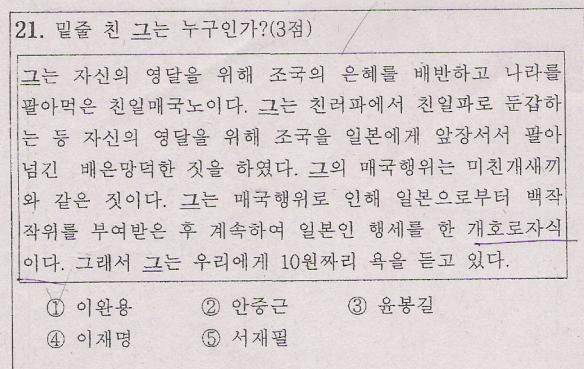 21. 밑줄 친 그는 누구인가?(3점)
그는 자신의 영달을 위해 조국의 은혜를 배반하고 나라를
팔아먹은 친일매국노이다. 그는 친러파에서 친일파로 둔갑하
는 등 자신의 영달을 위해 조국을 일본에게 앞장서서 팔아
넘긴 배은망덕한 짓을 하였다. 그의 매국행위는 미친개새끼
와 같은 짓이다. 그는 매국행위로 인해 일본으로부터 백작
작위를 부여받은 후 계속하여 일본인 행세를 한 개호로자식
이다. 그래서 그는 우리에게 10원짜리 욕을 듣고 있다.
① 이완용 ② 안중근 ③ 윤봉길
④ 이재명 ⑤ 서재필